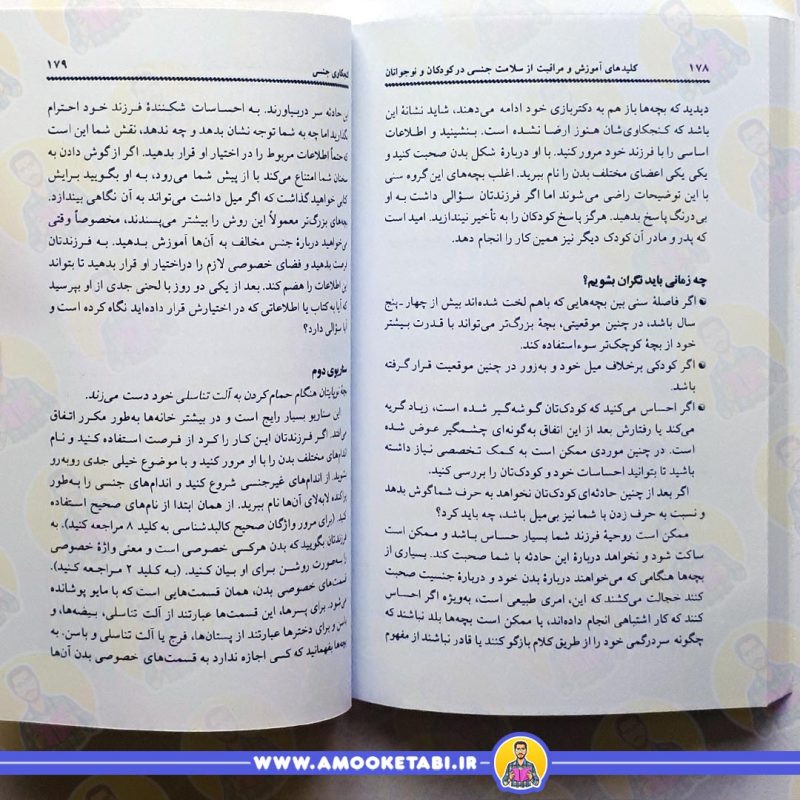 ۱۷۸ کلیدهای آموزش و مراقبت از سلامت جنسی در کودکان و نوجوانان
دیدید که بچه‌ها باز هم به دکتربازی خود ادامه می‌دهند، شاید نشانهٔ این
باشد که کنجکاوی‌شان هنوز ارضا نشده است. بنشینید و اطلاعات
اساسی را با فرزند خود مرور کنید. با او دربارهٔ شکل بدن صحبت کنید و
یکی یکی اعضای مختلف بدن را نام ببرید. اغلب بچه‌های این گروه سنی
با این توضیحات راضی می‌شوند اما اگر فرزندتان سؤالی داشت به او
بی‌درنگ پاسخ بدهید. هرگز پاسخ کودکان را به تأخیر نیندازید. امید است
که پدر و مادر آن کودک دیگر نیز همین کار را انجام دهد.
چه زمانی باید نگران بشویم؟
• اگر فاصلهٔ سنی بین بچه‌هایی که باهم لخت شده‌اند بیش از چهار-پنج
سال باشد، در چنین موقعیتی، بچهٔ بزرگ‌تر می‌تواند با قدرت بیشتر
خود از بچهٔ کوچک‌تر سوءاستفاده کند.
• اگر کودکی برخلاف میل خود و به‌زور در چنین موقعیت قرار گرفته
باشد.
• اگر احساس می‌کنید که کودک‌تان گوشه‌گیر شده است، زیاد گریه
می‌کند یا رفتارش بعد از این اتفاق به‌گونه‌ای چشمگیر عوض شده
است. در چنین موردی ممکن است به کمک تخصصی نیاز داشته
باشید تا بتوانید احساسات خود و کودک‌تان را بررسی کنید.
اگر بعد از چنین حادثه‌ای کودک‌تان نخواهد به حرف شما گوش بدهد
و نسبت به حرف زدن با شما نیز بی‌میل باشد، چه باید کرد؟
ممکن است روحیهٔ فرزند شما بسیار حساس باشد و ممکن است
ساکت شود و نخواهد دربارهٔ این حادثه با شما صحبت کند. بسیاری از
بچه‌ها هنگامی که می‌خواهند دربارهٔ بدن خود و دربارهٔ جنسیت صحبت
کنند خجالت می‌کشند که این، امری طبیعی است، به‌ویژه اگر احساس
کنند که کار اشتباهی انجام داده‌اند، یا ممکن است بچه‌ها بلد نباشند که
چگونه سردرگمی خود را از طریق کلام بازگو کنند یا قادر نباشند از مفهوم
کنجکاوی جنسی ۱۷۹
این حادثه سر دربیاورند. به احساسات شکنندهٔ فرزند خود احترام
بگذارید اما چه به شما توجه نشان بدهد و چه ندهد، نقش شما این است
که حتماً اطلاعات مربوط را در اختیار او قرار بدهید. اگر از گوش دادن به
سخنان شما امتناع می‌کند یا از پیش شما می‌رود، به او بگویید برایش
کتابی خواهید گذاشت که اگر میل داشت می‌تواند به آن نگاهی بیندازد.
بچه‌های بزرگ‌تر معمولاً این روش را بیشتر می‌پسندند، مخصوصاً وقتی
می‌خواهید دربارهٔ جنس مخالف به آن‌ها آموزش بدهید. به فرزندتان
فرصت بدهید و فضای خصوصی لازم را دراختیار او قرار بدهید تا بتواند
این اطلاعات را هضم کند. بعد از یکی دو روز با لحنی جدی از او بپرسید
که آیا به کتاب یا اطلاعاتی که در اختیارش قرار داده‌اید نگاه کرده است و
آیا سؤالی دارد؟
سناریوی دوم
بچهٔ نوپایتان هنگام حمام کردن به آلت تناسلی خود دست می‌زند.
این سناریو بسیار رایج است و در بیشتر خانه‌ها به‌طور مکرر اتفاق
می‌افتد. اگر فرزندتان این کار را کرد از فرصت استفاده کنید و نام
اندام‌های مختلف بدن را با او مرور کنید و با موضوع خیلی جدی روبه‌رو
نشوید. از اندام‌های غیرجنسی شروع کنید و اندام‌های جنسی را به‌طور
پراکنده لابه‌لای آن‌ها نام ببرید. از همان ابتدا از نام‌های صحیح استفاده
کنید. (برای مرور واژگان صحیح کالبدشناسی به کلید ۸ مراجعه کنید). به
فرزندتان بگویید که بدن هرکسی خصوصی است و معنی واژهٔ خصوصی
را به‌صورت روشن برای او بیان کنید. (به کلید ۲ مراجعه کنید).
قسمت‌های خصوصی بدن، همان قسمت‌هایی است که با مایو پوشانده
می‌شود. برای پسرها، این قسمت‌ها عبارتند از آلت تناسلی، بیضه‌ها، و
باسن و برای دخترها عبارتند از پستان‌ها، فرج یا آلت تناسلی و باسن. به
بچه‌ها بفهمانید که کسی اجازه ندارد به قسمت‌های خصوصی بدن آن‌ها
WWW.AMOOKETABI.IR